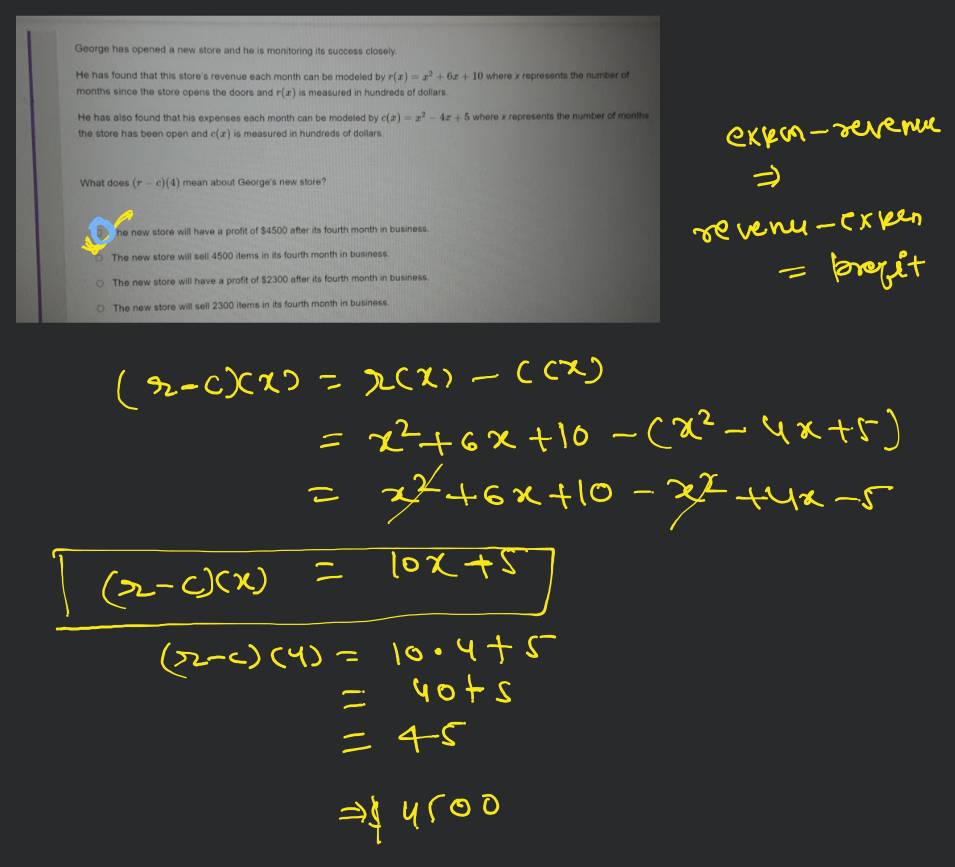 George has opened a new store and he is monitoring its success closely.
He has found that this store's revenue each month can be modeled by r(x) = x² + 6x + 10 where x represents the number of
months since the store opens the doors and r(x) is measured in hundreds of dollars.
He has also found that his expenses each month can be modeled by c(x) = x² − 4x + 5 where x represents the number of months
the store has been open and c(x) is measured in hundreds of dollars.
What does (r − c)(4) mean about George's new store?
he new store will have a profit of $4500 after its fourth month in business.
The new store will sell 4500 items in its fourth month in business.
The new store will have a profit of $2300 after its fourth month in business.
The new store will sell 2300 items in its fourth month in business.
expen-revenue
⇒
revenu-expen
= profit
(r-c)(x) = r(x) - c(x)
= x²+6x+10 - (x² - 4x+5)
= x²+6x+10 - x² +4x-5
(r-c)(x) = 10x+5
(r-c)(4) = 10·4+5
= 40+5
= 45
⇒$ 4500